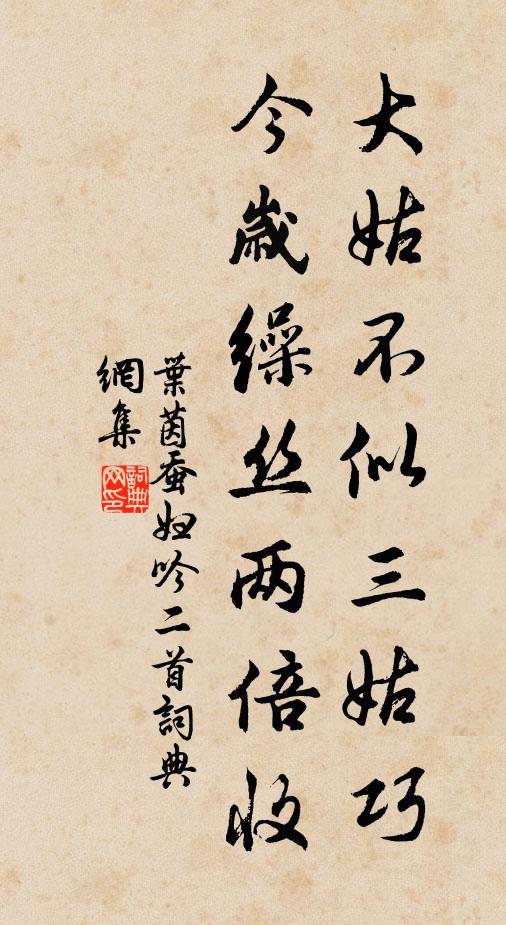 大姑不似三姑巧
今歲缲丝两倍收
葉茵蚕妇吟二首詞典
網集
詞典
网印